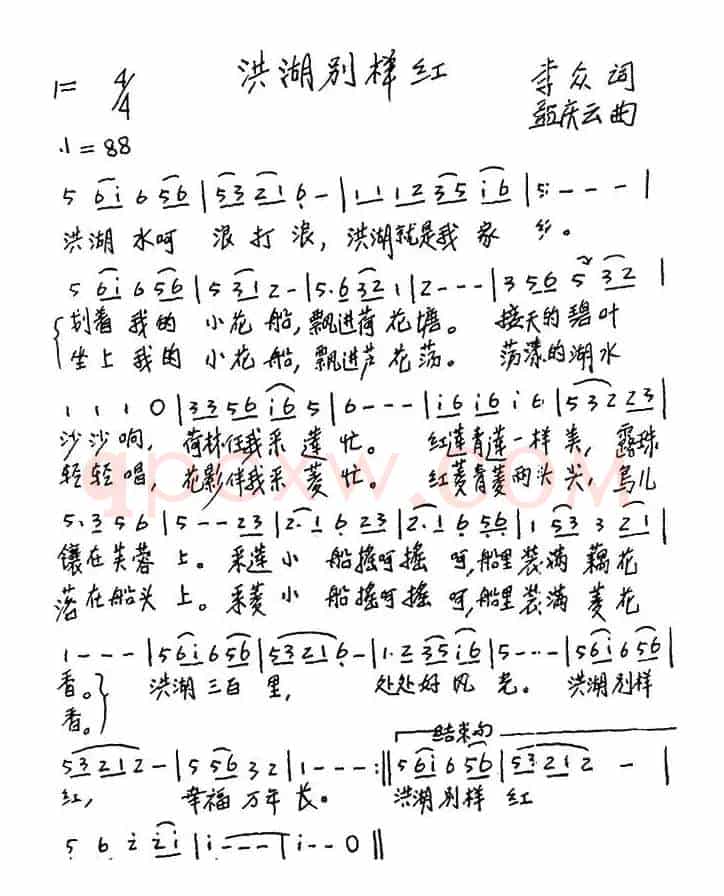 洪湖别样红
1= 4/4
李众词
孟庆云曲
♩=88
5 6i 6 56 | 53 21 6 - | 1 1 12 35 i6 | 5 - - - |
洪湖 水呵 浪打浪，洪湖就是我 家 乡。
5 6i 6 56 | 5 31 2 - | 5·6 32 1 | 2 - - - | 3 56 5 32 |
划着 我的 小花 船，飘进荷花塘。 接天的碧叶
坐上 我的 小花 船，飘进芦花荡。 荡漾的湖水
1 1 1 0 | 33 56 i6 5 | 6 - - - | i6 i6 i 6 | 53 2 23 |
沙沙响，荷林任我采 莲 忙。 红莲青莲一样 美，露珠
轻轻唱，花影伴我采 菱 忙。 红菱青菱两头 尖，鸟儿
5·3 5 6 | 5 - - 23 | 2·1 6 23 | 2·1 6 56 | 1 53 3 21 |
镶在芙蓉 上。采莲小 船摇呵摇 呵，船里装满 藕花
落在船头 上。采菱小 船摇呵摇 呵，船里装满 菱花
1 - - - | 56i 6 56 | 5321 6 - | 1·2 35 i6 | 5 - - - | 56i 6 56 |
香。 洪湖 三百 里， 处处好风 光。 洪湖别样
香。
结束句
5321 2 - | 5 56 3 2 | 1 - - - :|| 56i 6 56 | 5321 2 - |
红， 幸福 万年 长。 洪湖别样 红
5 6 2 2i | i - - - | i - - 0 ||
qpcxw.com